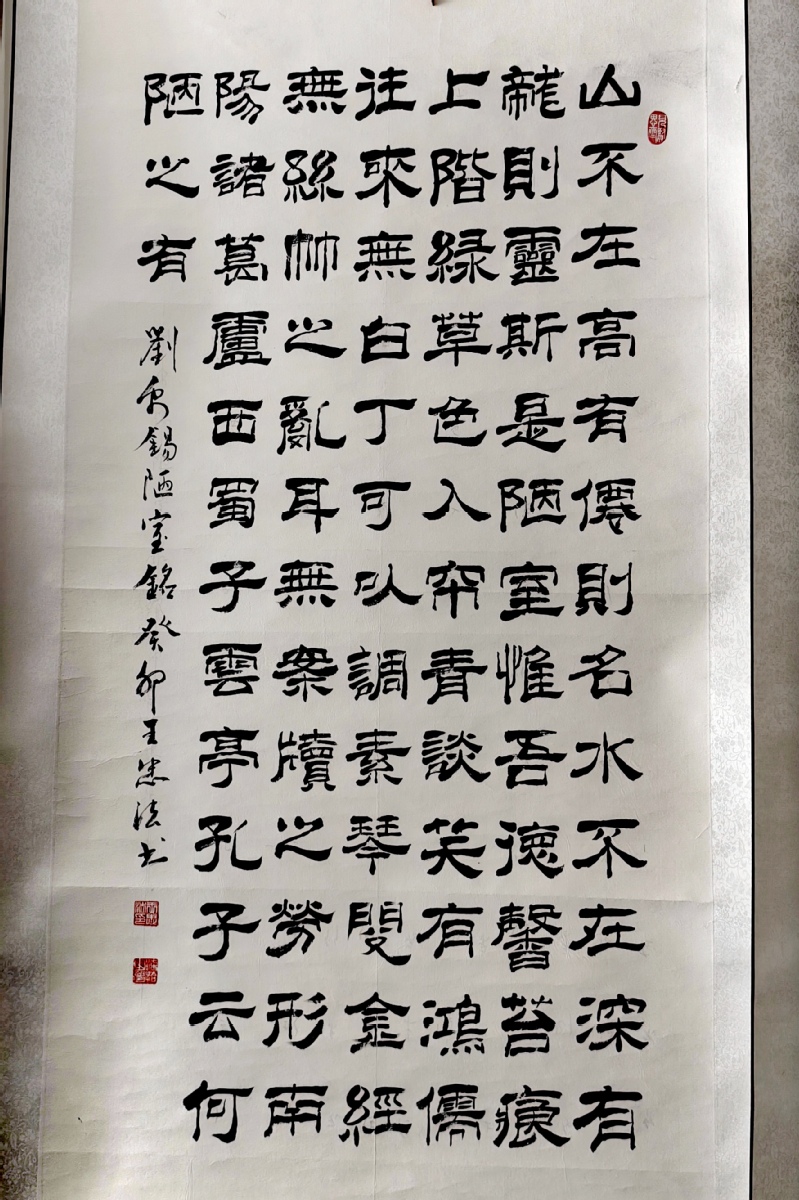 山不在高有僊則名水不在深有
龍則靈斯是陋室惟吾德馨苔痕
上階緑草色入帘青談笑有鴻儒
往來無白丁可以調素琴閱金經
無絲竹之亂耳無案牘之勞形南
陽諸葛廬西蜀子雲亭孔子云何
陋之有
劉禹錫陋室銘癸卯王忠法书